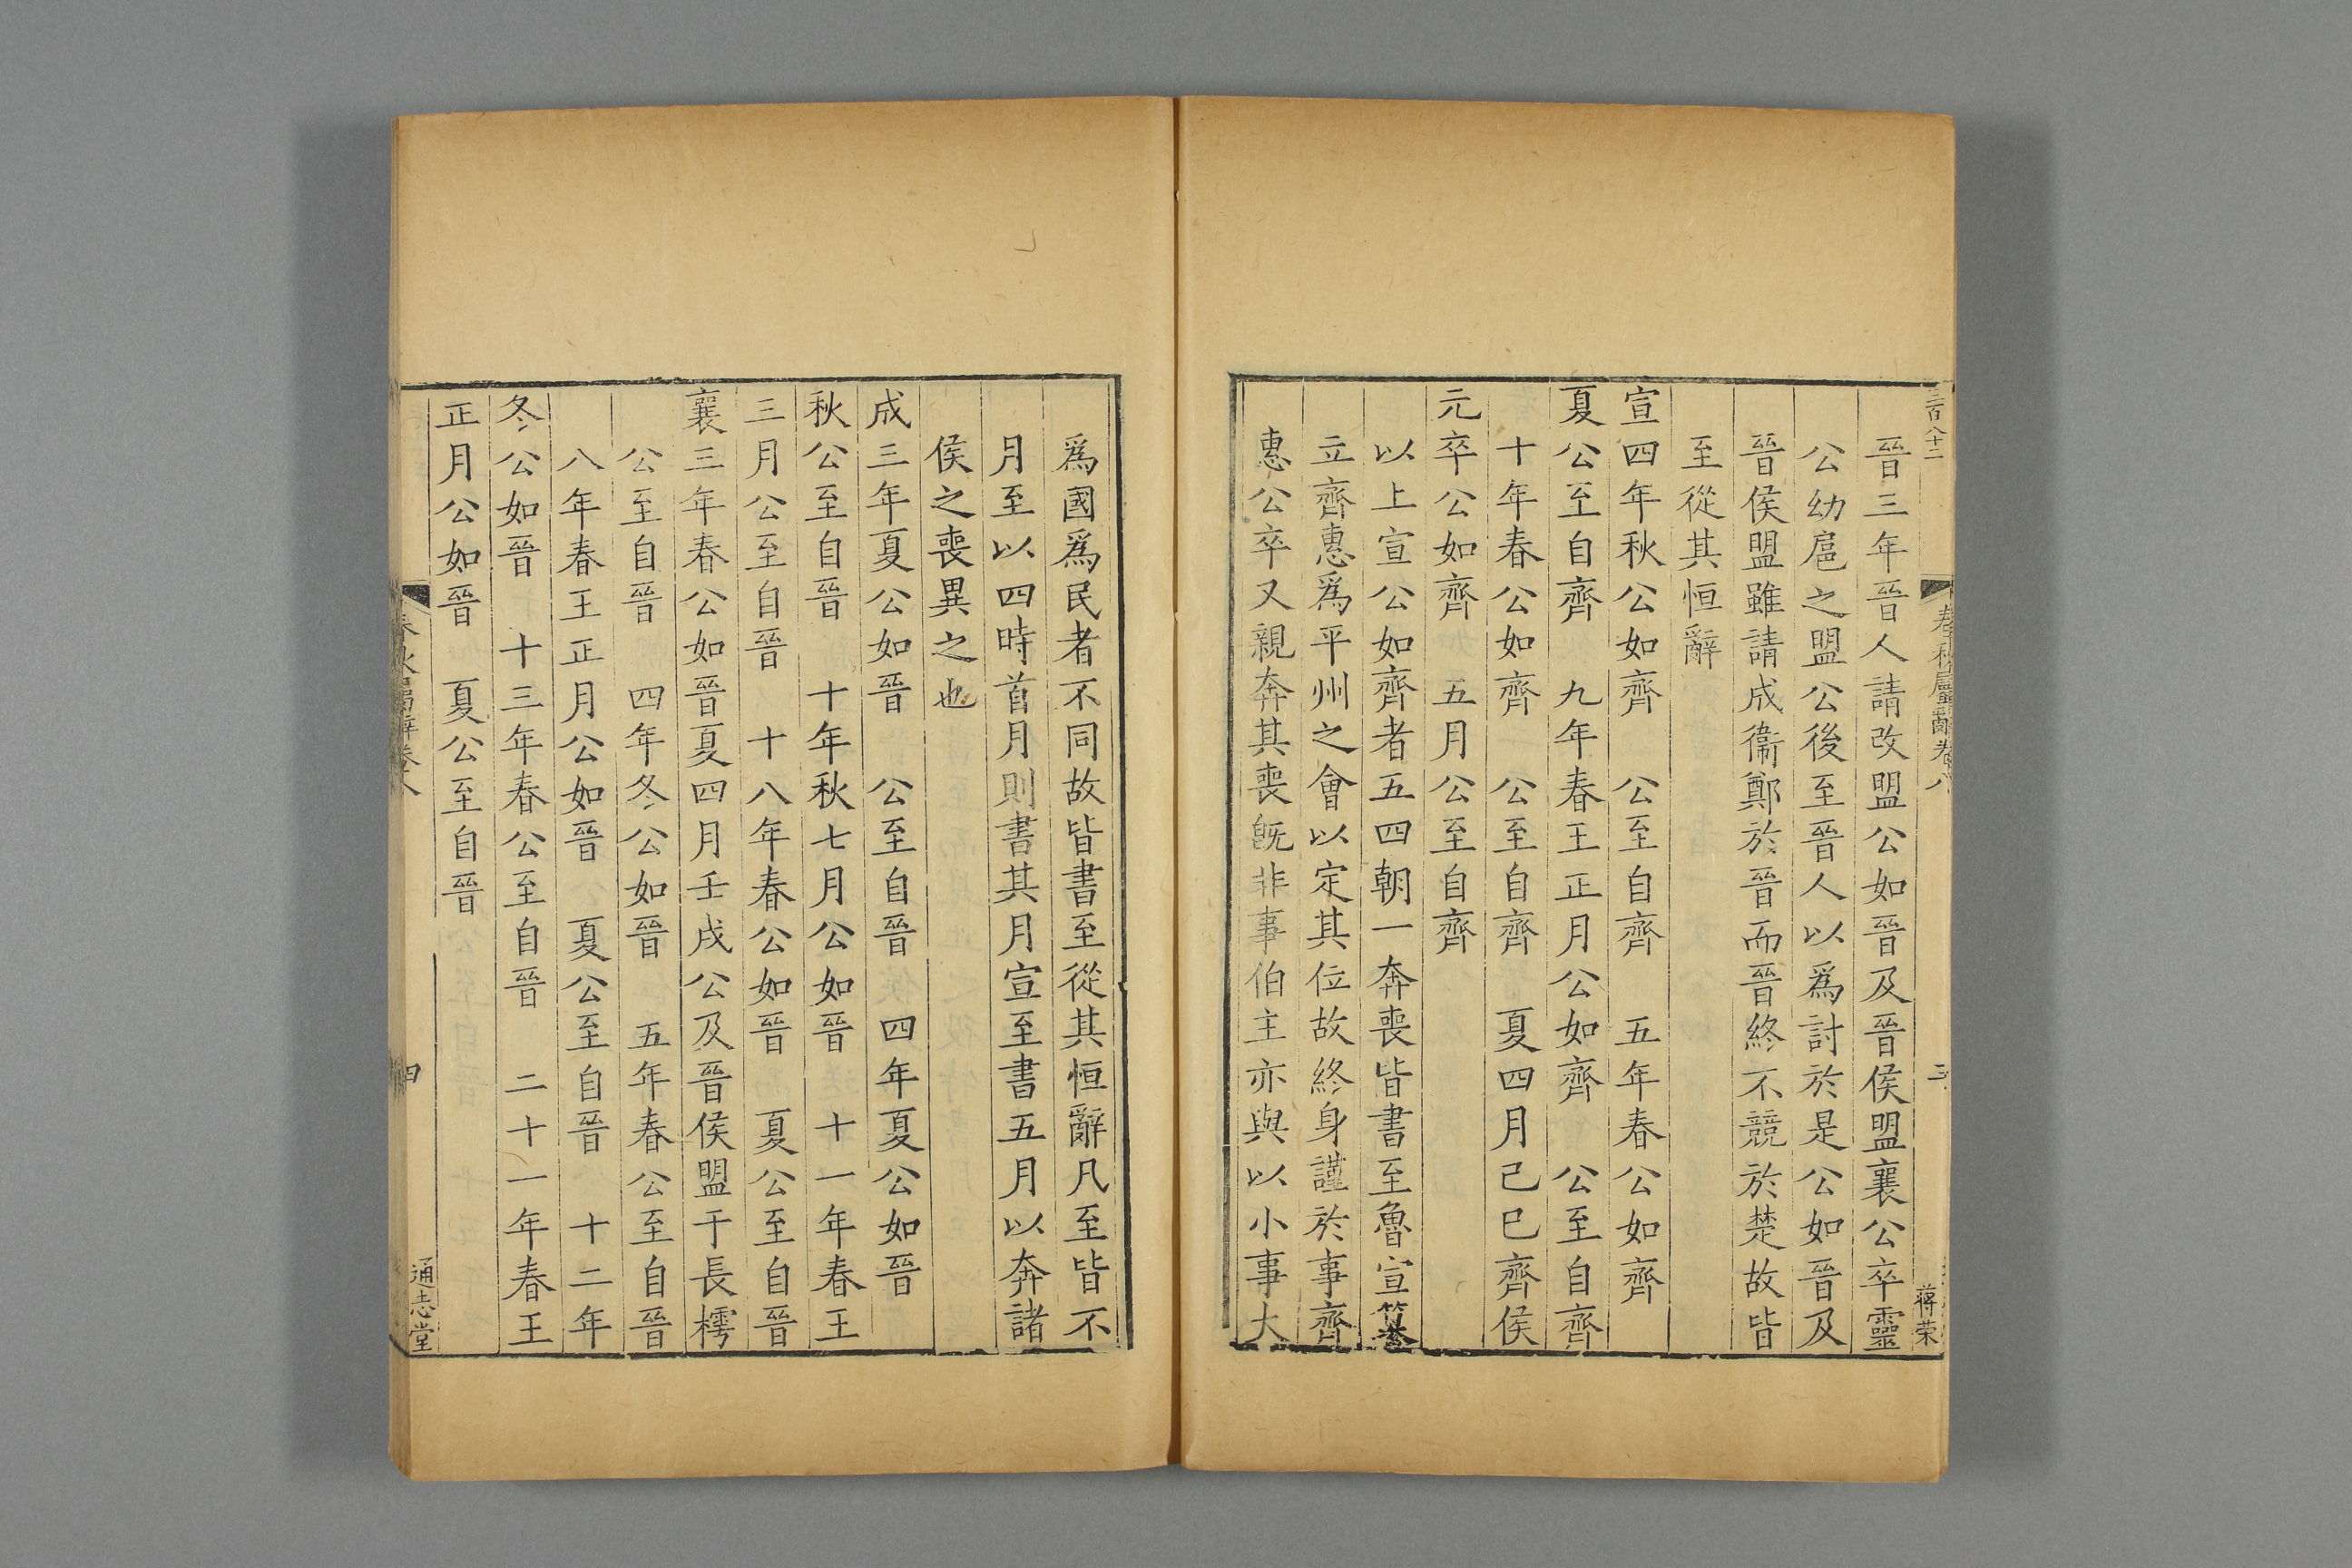 三百八十二
春秋屬辭卷八
三
蔣荣
晉三年晉人請改盟公如晉及晉侯盟襄公卒靈
公幼扈之盟公後至晉人以爲討於是公如晉及
晉侯盟雖請成衞鄭於晉而晉終不競於楚故皆
至從其恒辭
宣四年秋公如齊　公至自齊　五年春公如齊
夏公至自齊　九年春王正月公如齊　公至自齊
十年春公如齊　公至自齊　夏四月己巳齊侯
元卒公如齊　五月公至自齊
以上宣公如齊者五四朝一奔喪皆書至魯宣篡
立齊惠爲平州之會以定其位故終身謹於事齊
惠公卒又親奔其喪旣非事伯主亦與以小事大
爲國爲民者不同故皆書至從其恒辭凡至皆不
月至以四時首月則書其月宣至書五月以奔諸
侯之喪異之也
成三年夏公如晉　公至自晉　四年夏公如晉
秋公至自晉　十年秋七月公如晉　十一年春王
三月公至自晉　十八年春公如晉　夏公至自晉
襄三年春公如晉夏四月壬戌公及晉侯盟于長樗
公至自晉　四年冬公如晉　五年春公至自晉
八年春王正月公如晉　夏公至自晉　十二年
冬公如晉　十三年春公至自晉　二十一年春王
正月公如晉　夏公至自晉
春秋屬辭卷八
四
通志堂